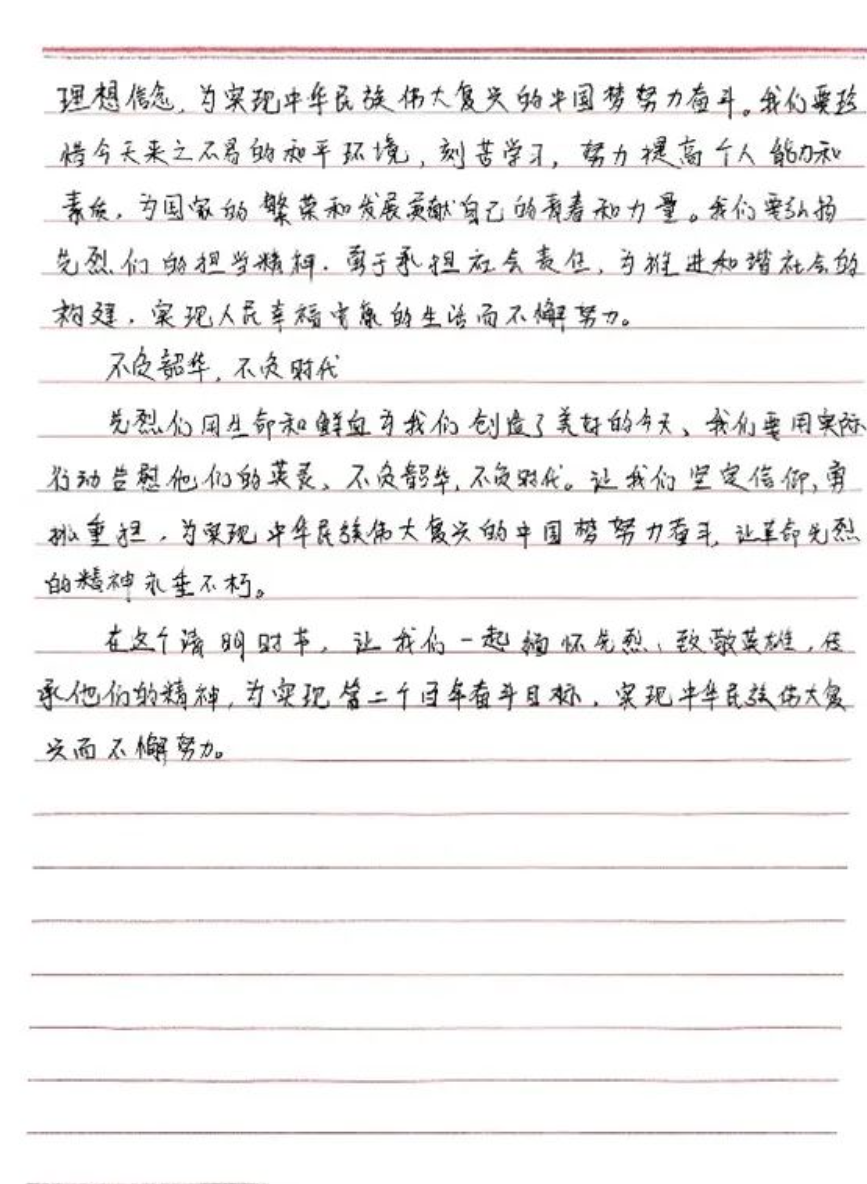 理想信念,为实现中华民族伟大复兴的中国梦努力奋斗。我们要珍
惜今天来之不易的和平环境,刻苦学习,努力提高个人能力和
素质,为国家的繁荣和发展贡献自己的青春和力量。我们要弘扬
先烈们的担当精神.勇于承担社会责任,为推进和谐社会的
构建,实现人民幸福安康的生活而不懈努力。
不负韶华,不负时代
先烈们用生命和鲜血为我们创造了美好的今天、我们要用实际
行动告慰他们的英灵、不负韶华,不负时代。让我们坚定信仰,勇
挑重担,为实现中华民族伟大复兴的中国梦努力奋斗,让革命先烈
的精神永垂不朽。
在这个清明时节,让我们一起缅怀先烈、致敬英雄,传
承他们的精神,为实现第二个百年奋斗目标、实现中华民族伟大复
兴而不懈努力。